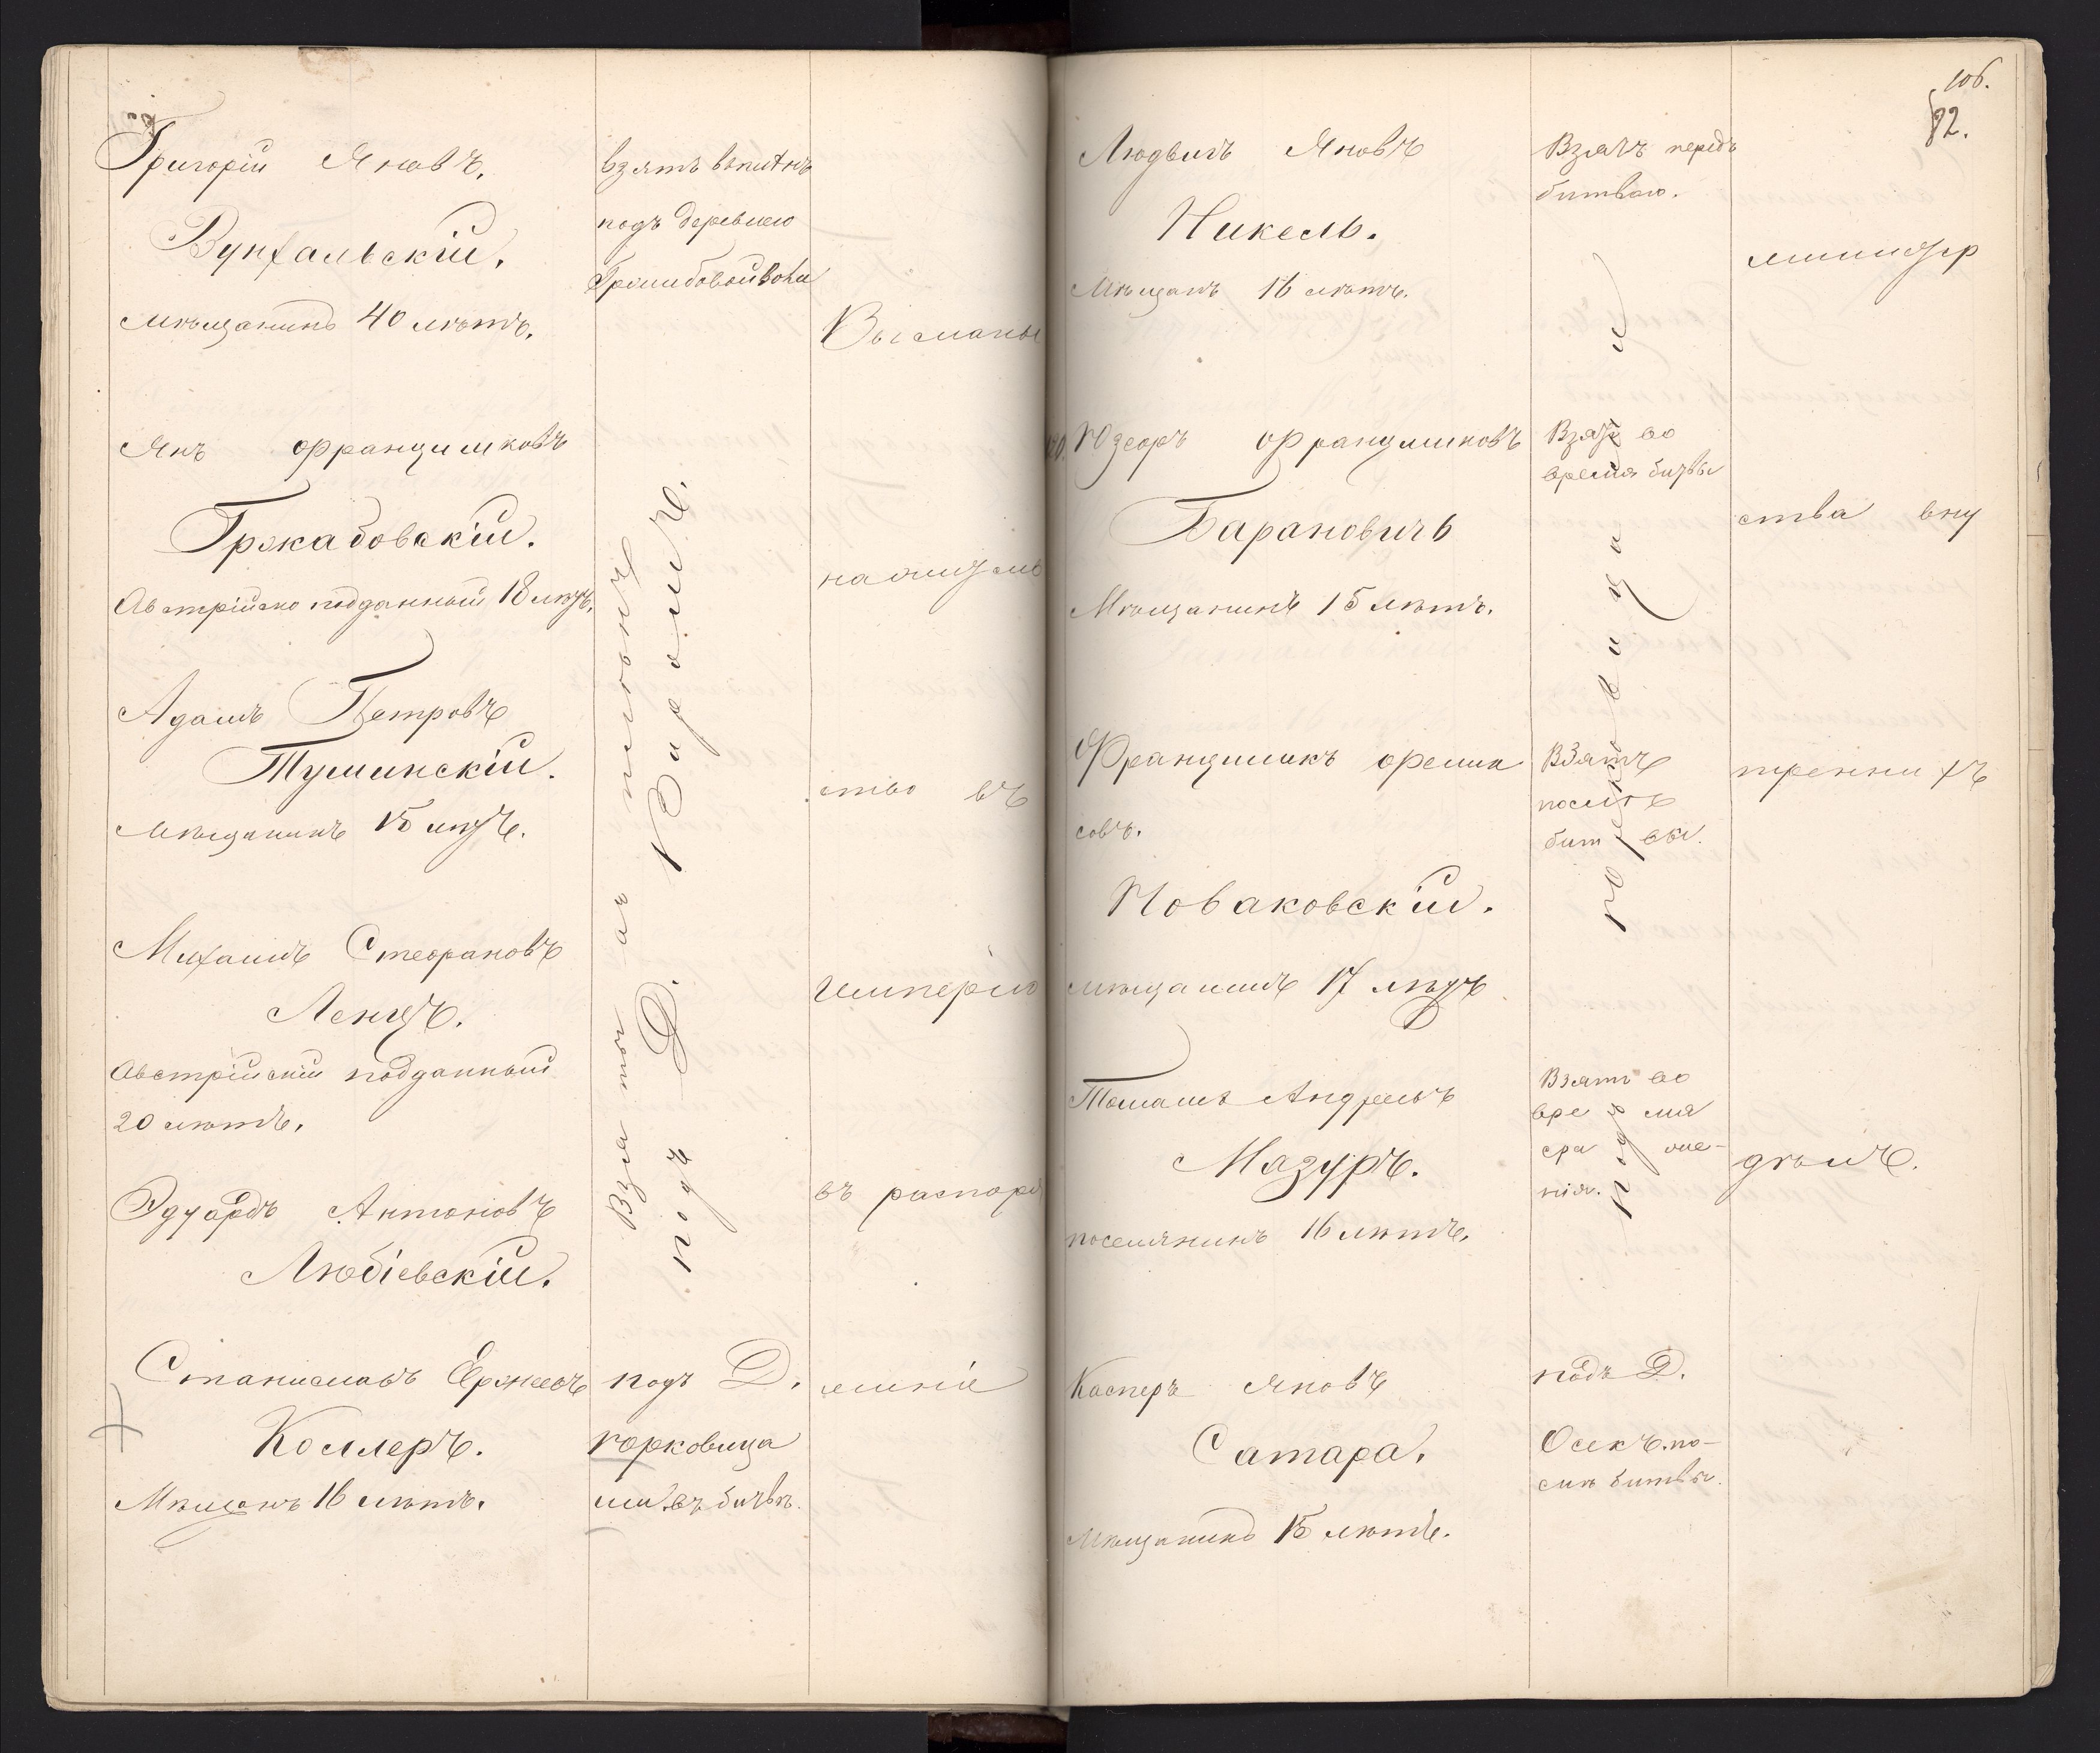 Григорій Яновъ.
Вунхальскій.
мѣщанинъ 40 лѣтъ.
взятъ въ плѣнъ
подъ деревнею
Янъ Францишковъ
Гржабовскій.
Австрійско подданный 18 лѣтъ.
Адамъ Петровъ
Тулинскій.
мѣщанинъ 15 лѣтъ.
Михаилъ Стефановъ
Ленцъ.
Австрійскій подданный
20 лѣтъ.
Эдуардъ Антоновъ
Любіевскій.
Станиславъ
Коллеръ.
Мѣщанъ 16 лѣтъ.
подъ Д.
въ битвѣ.
подъ Д.
Высланы
на житель
ство въ
Имперію
въ распоря
женіе
106.
82.
Людвигъ Яновъ
Никель.
Мѣщанъ 16 лѣтъ.
Взятъ передъ
битвою.
министер
120. Юзефъ Францишковъ
Барановичъ
Мѣщанинъ 15 лѣтъ.
Взятъ во
время битвы
ства вну
Францишекъ
совъ.
Новаковскій.
мѣщанинъ 17 лѣтъ
Взятъ
послѣ
битвы.
треннихъ
Томашъ Андреевъ
Мазуръ.
поселянинъ 16 лѣтъ.
Взятъ во
время
сраже-
нія.
дѣлъ.
подъ
Касперъ Яновъ
Сатара.
Мѣщанинъ 15 лѣтъ.
подъ Д.
Осекъ. по-
слѣ битвы.